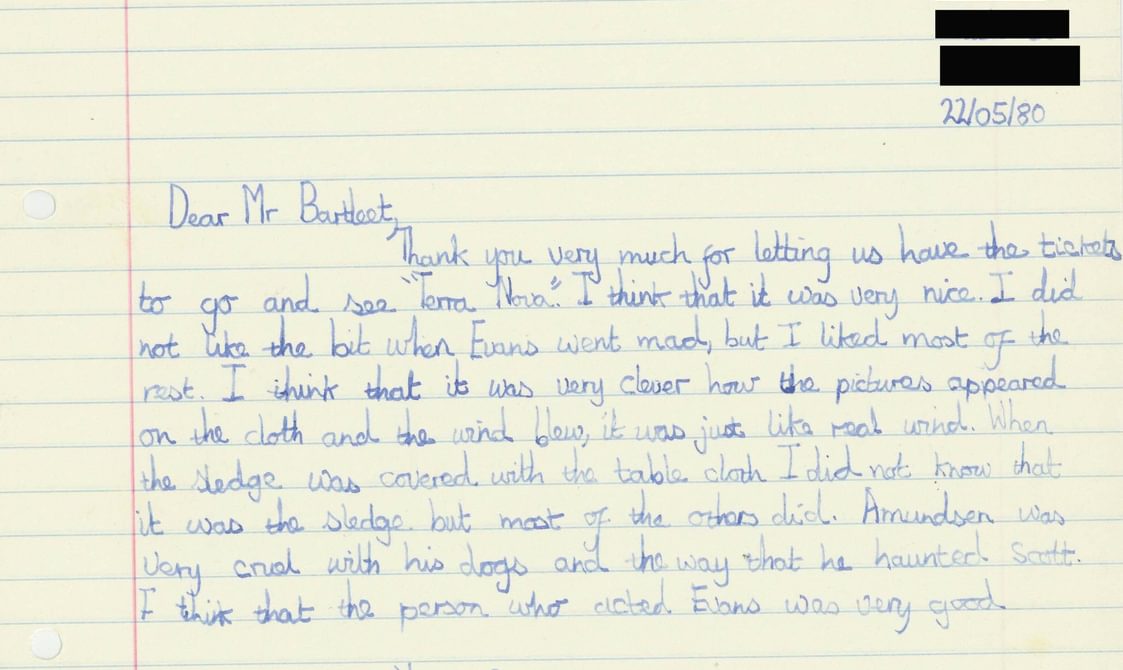 22/05/80
Dear Mr Bartleet,
Thank you very much for letting us have the tickets
to go and see "Terra Nova". I think that it was very nice. I did
not like the bit when Evans went mad, but I liked most of the
rest. I think that it was very clever how the pictures appeared
on the cloth and the wind blew, it was just like real wind. When
the sledge was covered with the table cloth I did not know that
it was the sledge but most of the others did. Amundsen was
very cruel with his dogs and the way that he haunted Scott.
I think that the person who acted Evans was very good